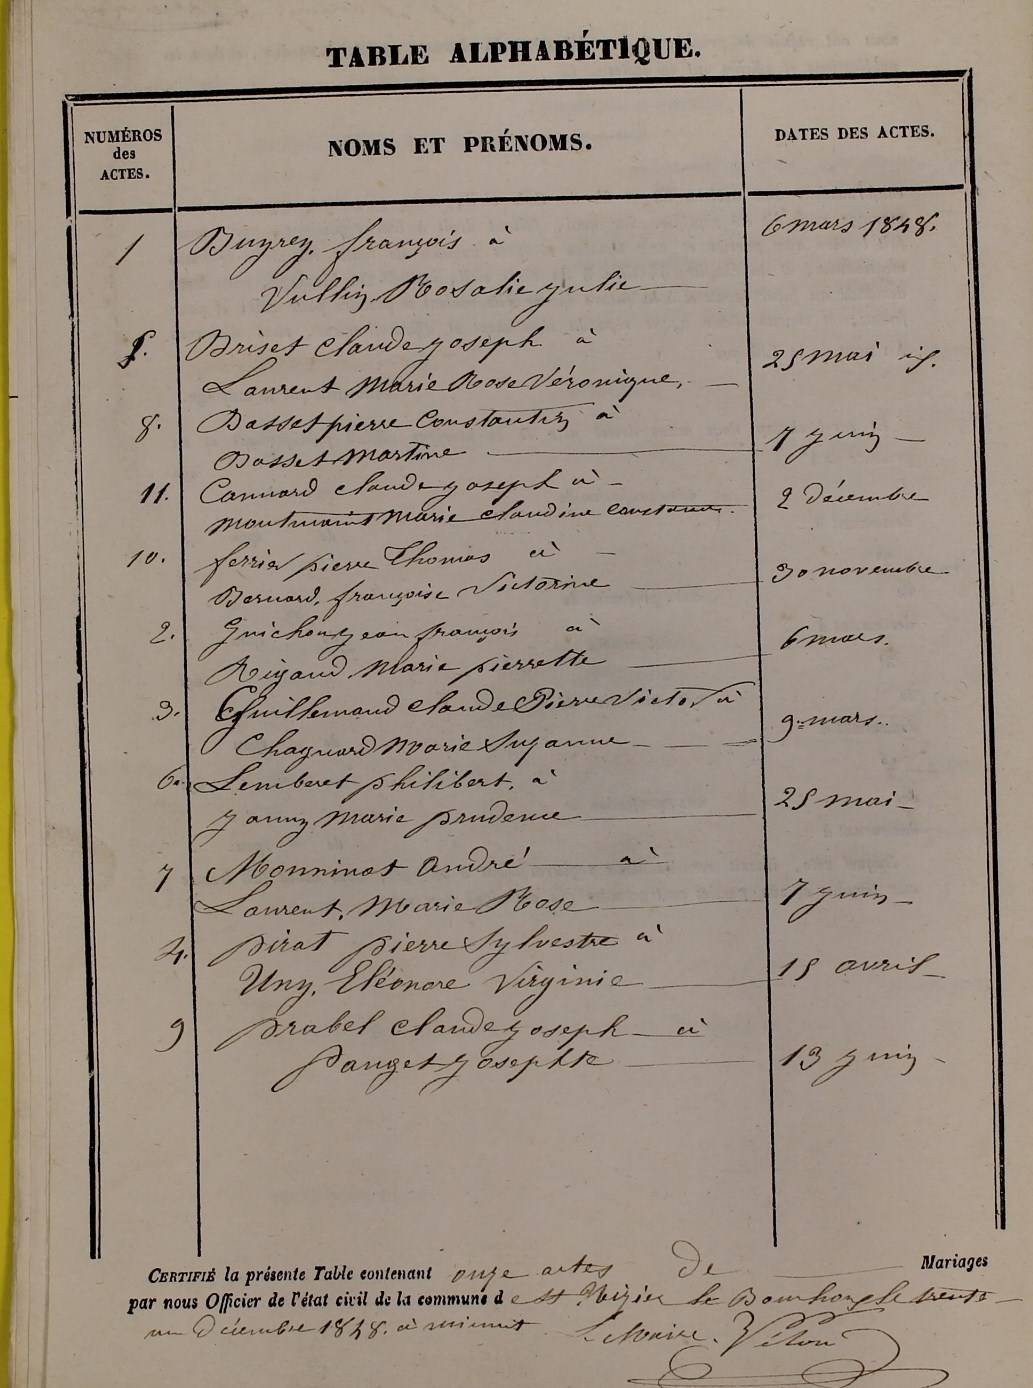 TABLE ALPHABÉTIQUE.
NUMÉROS des ACTES.
NOMS ET PRÉNOMS.
DATES DES ACTES.
1 Buyrey, françois à 6 mars 1848.
Vullin Rosalie Julie
5. Briset Claude Joseph à
Laurent Marie Rose Véronique, 25 mai id.
8. Basset pierre Constantin à
Basset Martine 7 Juin
11. Cannard Claude Joseph à
Marie Claudine 2 décembre
10. ferrier pierre Thomas à
Bernard, françoise Victorine 30 novembre
2. Guichon Jean françois à
Rigaud Marie pierrette 6 mars.
3. Guillemaud Claude Pierre Victor à
Chagnard Marie Suzanne 9 mars.
6 Lemberet philibert, à
Janny Marie prudence 25 mai
7 Monninot André à
Laurent, Marie Rose 7 Juin
4. pirat pierre Sylvestre à
Uny, Eléonore Virginie 15 avril
9 prabel Claude Joseph à
panget Josephte 13 Juin
CERTIFIÉ la présente Table contenant onze actes De Mariages
par nous Officier de l'état civil de la commune de St Nizier le Bouchoux le trente
un Décembre 1848. à minuit Le Maire.